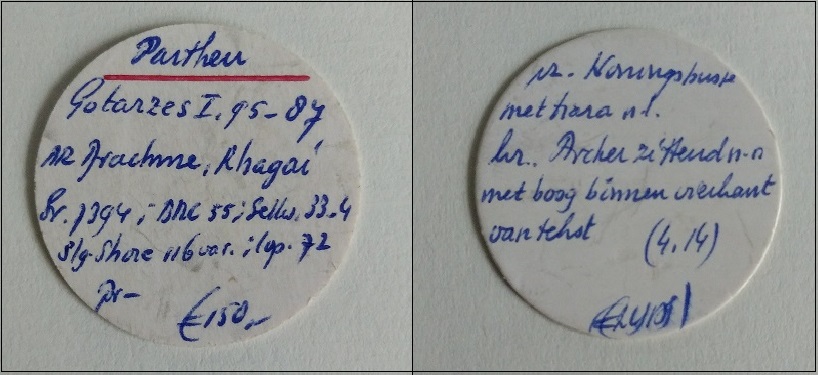 Parthen
Gotarzes I, 95-87
AR Drachme, Rhagai
p 394; BMC 55; Sellw. 33.4
Slg. Shore 116 var.; 72
pr-
€150,-
vz. Koningsbuste
met tiara n.l.
kz. Archer zittend n.r.
met boog binnen vierkant
van tekst (4.14)